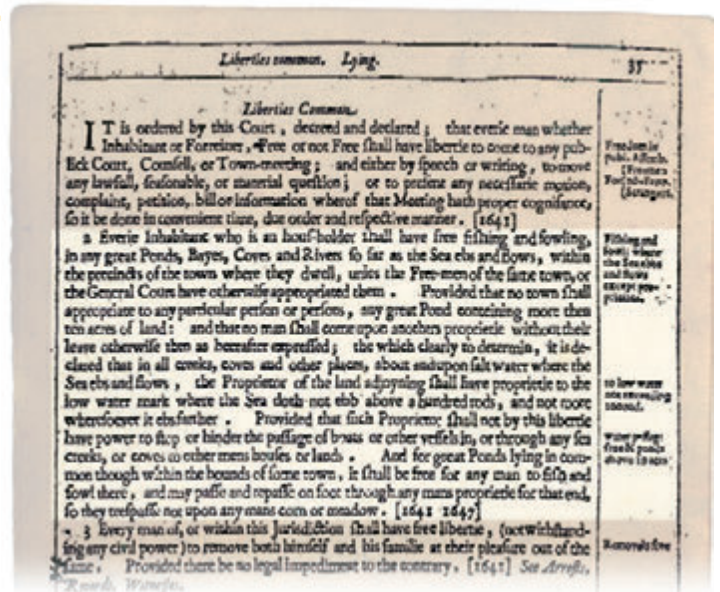 Liberties common. Lying. 35
Liberties Common.
IT is ordered by this Court, decreed and declared; that everie man whether
Inhabitant or Forreiner, Free or not Free shall have libertie to come to any pub-
lick Court, Counsell, or Town-meeting; and either by speech or writing, to move
any lawfull, seasonable, or material question; or to present any necessarie motion,
complaint, petition, bill or information wherof that Meeting hath proper cognisance,
so it be done in convenient time, due order and respective manner. [1641]
2 Everie Inhabitant who is an hous-holder shall have free fishing and fowling,
in any great Ponds, Bayes, Coves and Rivers so far as the Sea ebs and flows, within
the precincts of the town where they dwell, unles the Free-men of the same town, or
the General Court have otherwise appropriated them. Provided that no town shall
appropriate to any particular person or persons, any great Pond containing more then
ten acres of land: and that no man shall come upon anothers proprietie without their
leave otherwise then as heerafter expressed; the which clearly to determin, it is de-
clared that in all creeks, coves and other places, about and upon salt water where the
Sea ebs and flows, the Proprietor of the land adjoyning shall have proprietie to the
low water mark where the Sea doth not ebb above a hundred rods, and not more
wheresoever it ebs farther. Provided that such Proprietor shall not by this libertie
have power to stop or hinder the passage of boats or other vessels in, or through any sea
creeks, or coves to other mens houses or lands. And for great Ponds lying in com-
mon though within the bounds of some town, it shall be free for any man to fish and
fowl there, and may passe and repasse on foot through any mans proprietie for that end,
so they trespasse not upon any mans corn or meadow. [1641 1647]
3 Every man of, or within this Jurisdiction shall have free libertie, (notwithstand-
ing any civil power) to remove both himself and his familie at their pleasure out of the
same. Provided there be no legal impediment to the contrary. [1641] See Arrests,
Records, Witnesses.
Freedom in
publ. Assemb.
Fishing and
fowl: where
the Sea ebs
and flows
except pro-
to low water
not exceeding
Removals free